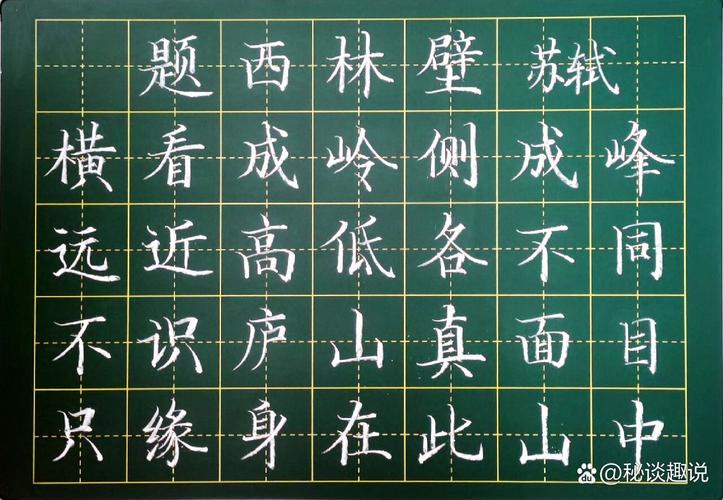 题西林壁 苏轼
横看成岭侧成峰
远近高低各不同
不识庐山真面目
只缘身在此山中
@秘谈趣说